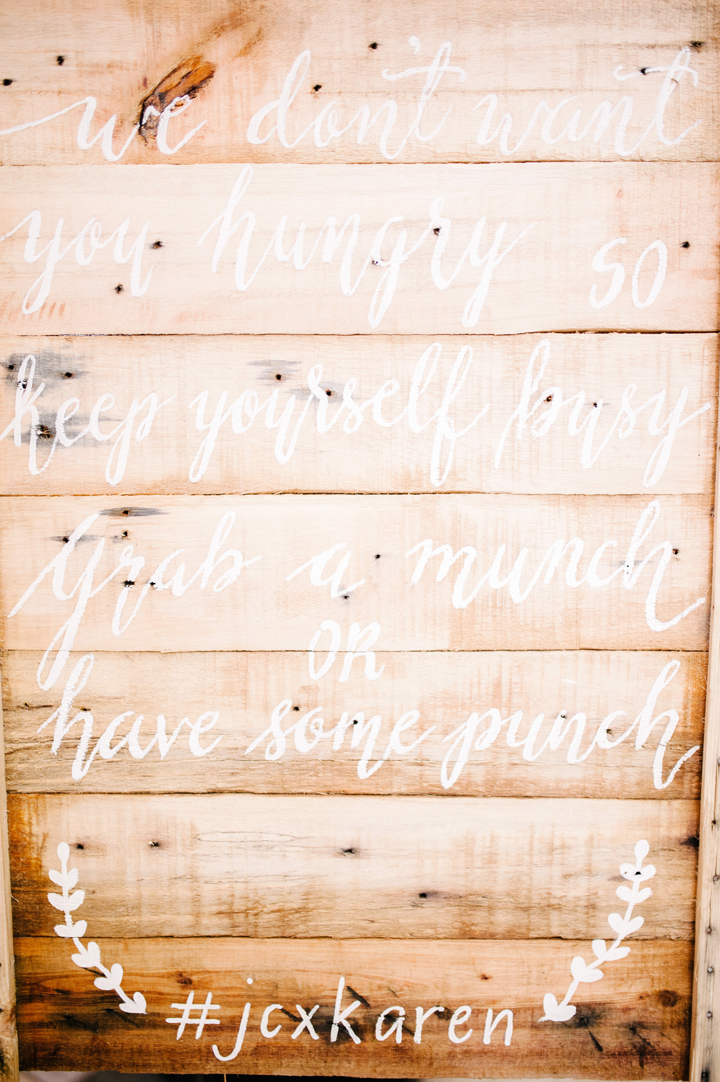 we don't want
you hungry so
keep yourself busy
Grab a munch
OR
have some punch
#jcxkaren